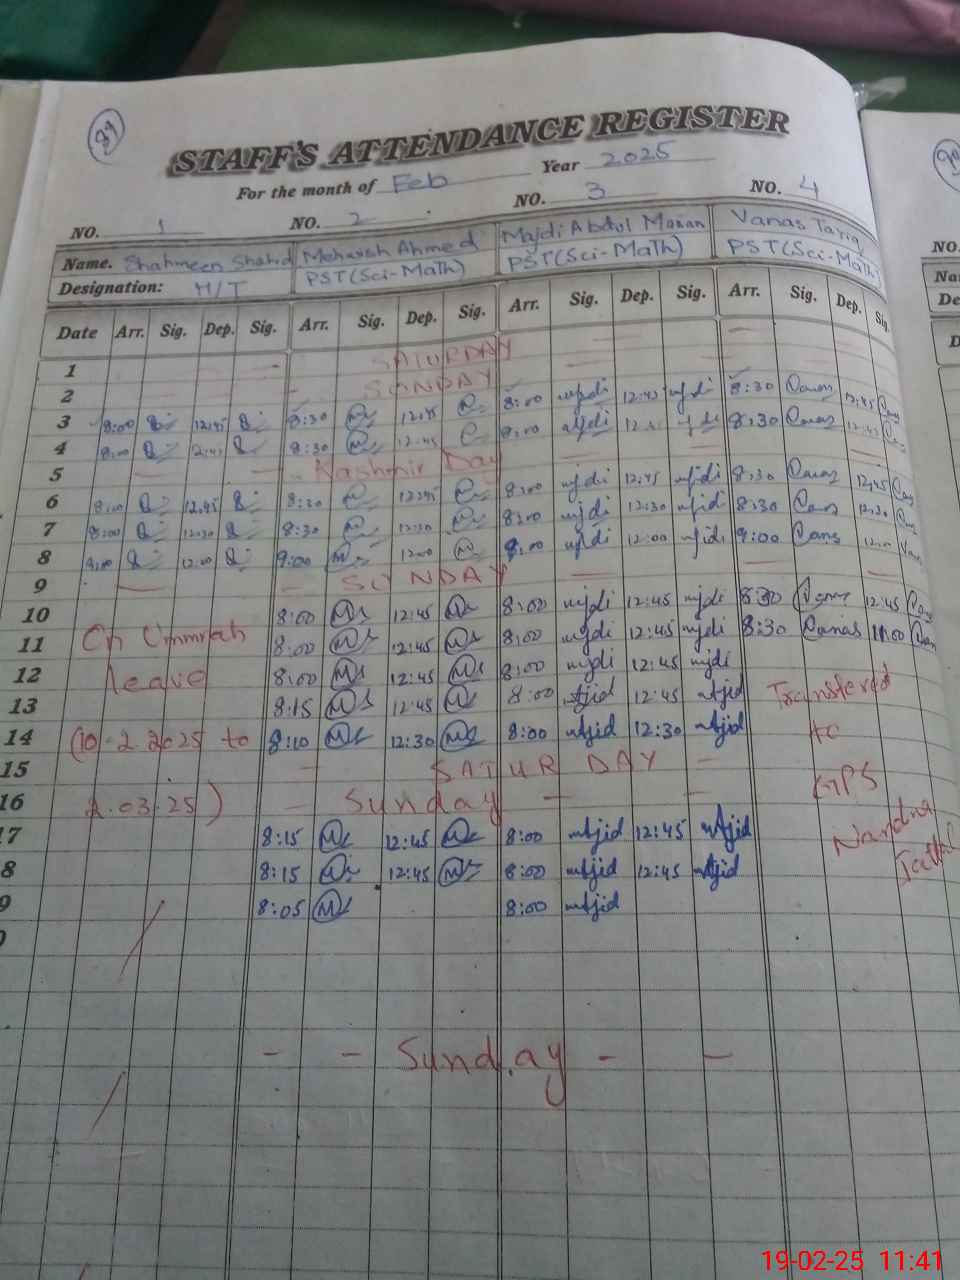 89
STAFF'S ATTENDANCE REGISTER
For the month of Feb Year 2025
NO. 1 NO. 2 NO. 3 NO. 4
Name. Shahmeen Shahid Mehwish Ahmed Majdi Abdul Manan Vanas Tariq
Designation: H/T PST(Sci-Math) PST(Sci-Math) PST(Sci-Math)
Date Arr. Sig. Dep. Sig. Arr. Sig. Dep. Sig. Arr. Sig. Dep. Sig. Arr. Sig. Dep. Sig.
1 SATURDAY
2 SUNDAY
3 8:00 12:45 8:30 12:45 8:00 majdi 12:45 majdi 8:30 12:45
4 8:00 2:45 8:30 12:45 8:00 majdi 8:30 12:45
5 Kashmir Day
6 8:00 12:45 8:30 12:45 8:00 majdi 12:45 majdi 8:30 12:45
7 8:00 12:30 8:30 12:30 8:00 majdi 12:30 majdi 8:30 12:30
8 8:00 12:00 9:00 12:00 8:00 majdi 12:00 majdi 9:00
9 SUNDAY
10 8:00 12:45 8:00 majdi 12:45 majdi 8:30 12:45
11 On Ummrah 8:00 12:45 8:00 majdi 12:45 majdi 8:30 Vanas 11:00
12 leave 8:00 12:45 8:00 majdi 12:45 majdi
13 8:15 12:45 8:00 Majid 12:45 Majid Transfered
14 (10-2-2025 to 8:10 12:30 8:00 Majid 12:30 Majid to
15 SATUR DAY
16 2.03.25) Sunday GPS
17 8:15 12:45 8:00 Majid 12:45 Majid Nandna
8 8:15 12:45 8:00 Majid 12:45 Majid
9 8:05 8:00 Majid
Sunday
NO.
19-02-25 11:41